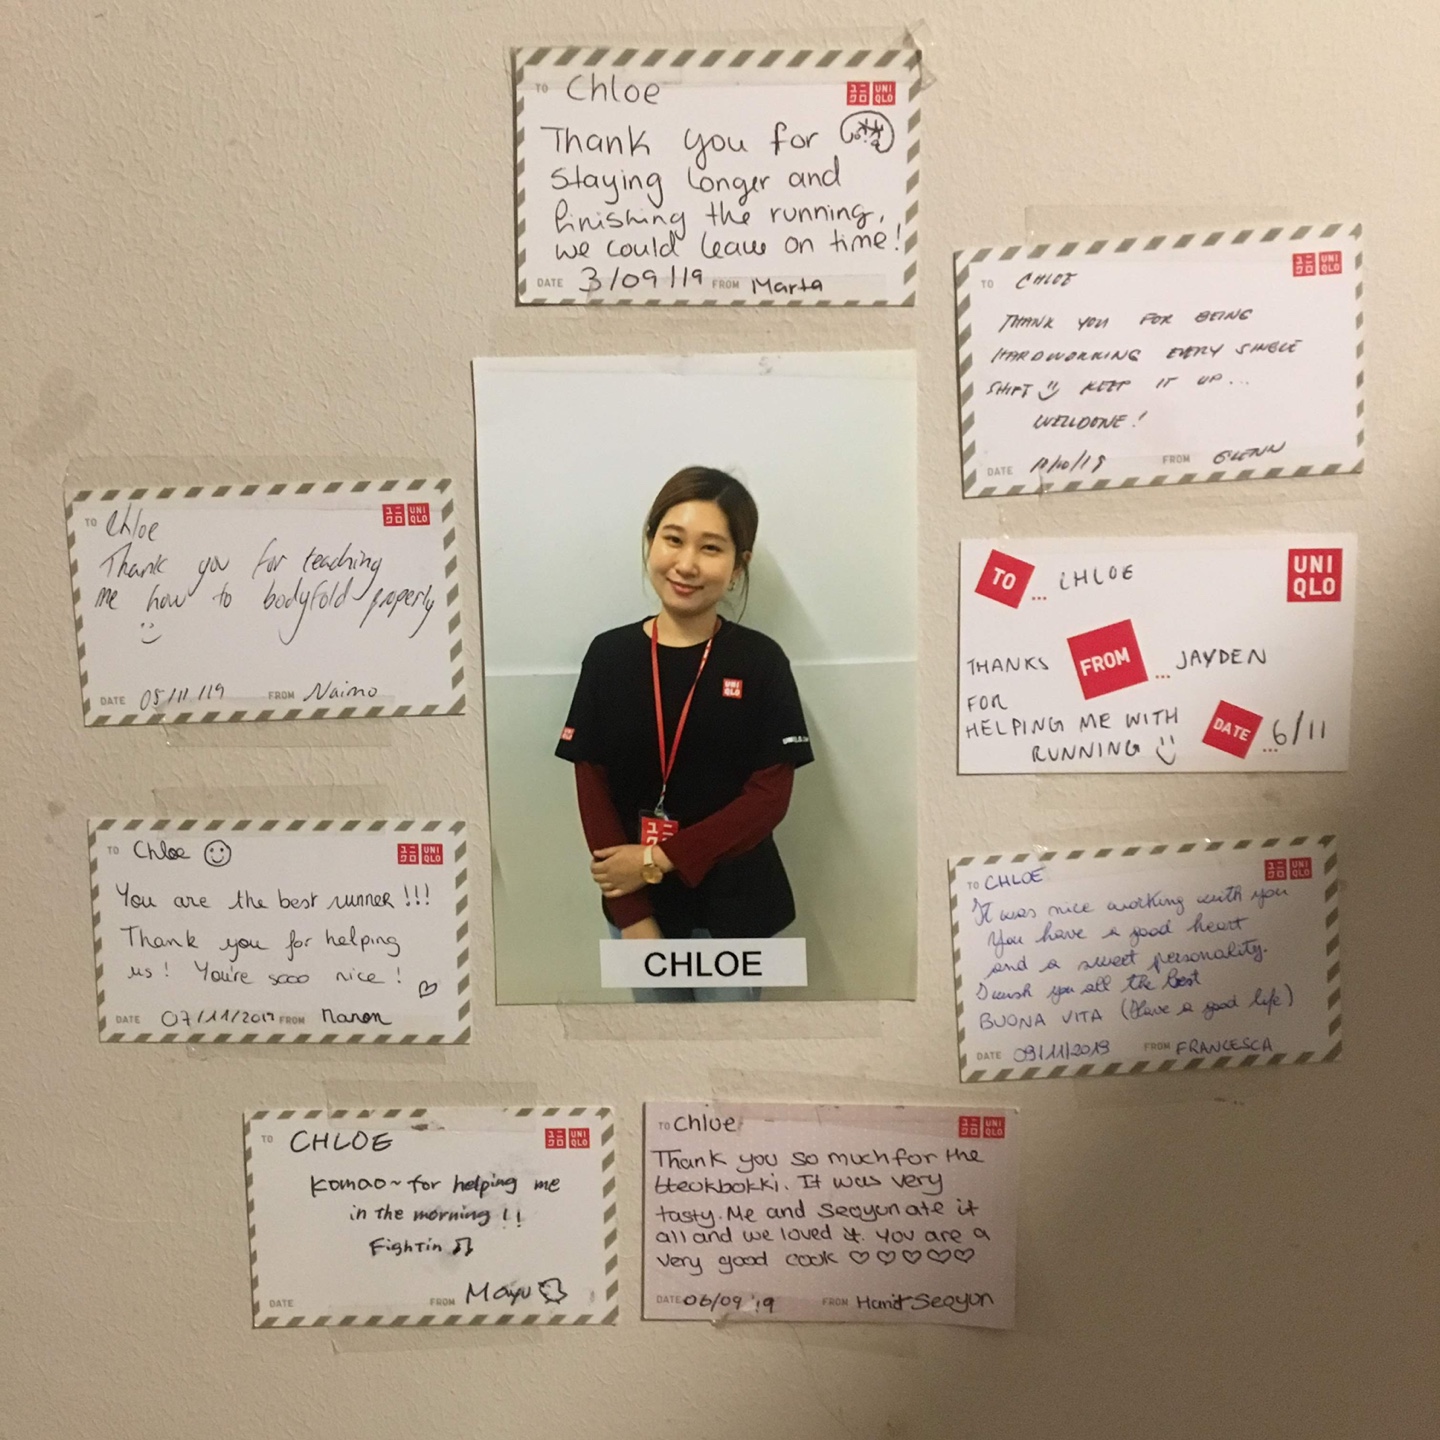 TO Chloe
ユニクロ UNIQLO
Thank you for
staying longer and
finishing the running,
we could leave on time!
DATE 3/09/19 FROM Marta
TO CHLOE
ユニクロ UNIQLO
THANK YOU FOR BEING
HARDWORKING EVERY SINGLE
SHIFT KEEP IT UP...
WELLDONE!
DATE FROM GLENN
TO Chloe
ユニクロ UNIQLO
Thank you for teaching
me how to bodyfold properly
DATE 05/11/19 FROM Naimo
TO... CHLOE
UNIQLO
THANKS FROM... JAYDEN
FOR
HELPING ME WITH
RUNNING
DATE... 6/11
UNIQLO
ユニ
CHLOE
TO Chloe
ユニクロ UNIQLO
You are the best runner!!!
Thank you for helping
us! You're sooo nice!
DATE 07/11/2019 FROM Manon
TO CHLOE
ユニクロ UNIQLO
It was nice working with you
You have a good heart
and a sweet personality.
I wish you all the best
BUONA VITA (Have a good life)
DATE 09/11/2019 FROM FRANCESCA
TO CHLOE
ユニクロ UNIQLO
Komao~ for helping me
in the morning!!
Fightin
DATE FROM Mayu
TO Chloe
ユニクロ UNIQLO
Thank you so much for the
tteokbokki. It was very
tasty. Me and Seoyun ate it
all and we loved it. You are a
very good cook ♡♡♡♡♡
DATE 06/09 '19 FROM Seoyun